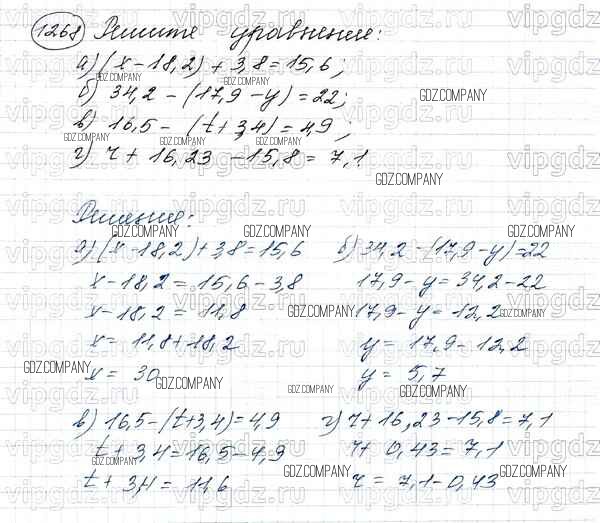 1268 Решите уравнение:
а) (x-18,2) + 3,8 = 15,6;
б) 34,2 - (17,9 - y) = 22;
в) 16,5 - (t + 3,4) = 4,9;
г) r + 16,23 - 15,8 = 7,1
Решение:
а) (x-18,2)+3,8=15,6
x-18,2 = 15,6-3,8
x-18,2 = 11,8
x = 11,8+18,2
x = 30
б) 34,2-(17,9-y)=22
17,9-y=34,2-22
17,9-y=12,2
y = 17,9-12,2
y = 5,7
в) 16,5-(t+3,4)=4,9
t+3,4=16,5-4,9
t+3,4 = 11,6
г) r+16,23-15,8=7,1
r+ 0,43=7,1
r = 7,1-0,43
vipgdz.ru
GDZ.COMPANY